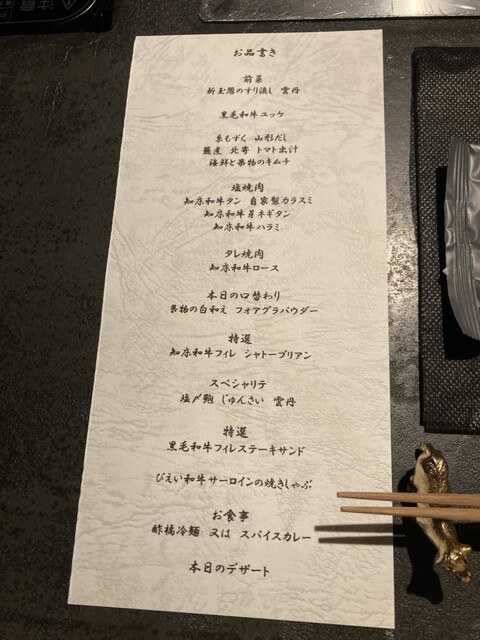 注意
お品書き
前菜
新玉葱のすり流し 雲丹
黒毛和牛ユッケ
糸もずく 山形だし
蓮煮 北寄 トマト出汁
海鮮と果物のキムチ
塩焼肉
知床和牛タン 自家製カラスミ
知床和牛芽ネギタン
知床和牛ハラミ
タレ焼肉
知床和牛ロース
本日の口替わり
果物の白和え フォアグラパウダー
特選
知床和牛フィレ シャトーブリアン
スペシャリテ
塩〆鮑 じゅんさい 雲丹
特選
黒毛和牛フィレステーキサンド
びえい和牛サーロインの焼きしゃぶ
お食事
酢橘冷麺 又は スパイスカレー
本日のデザート